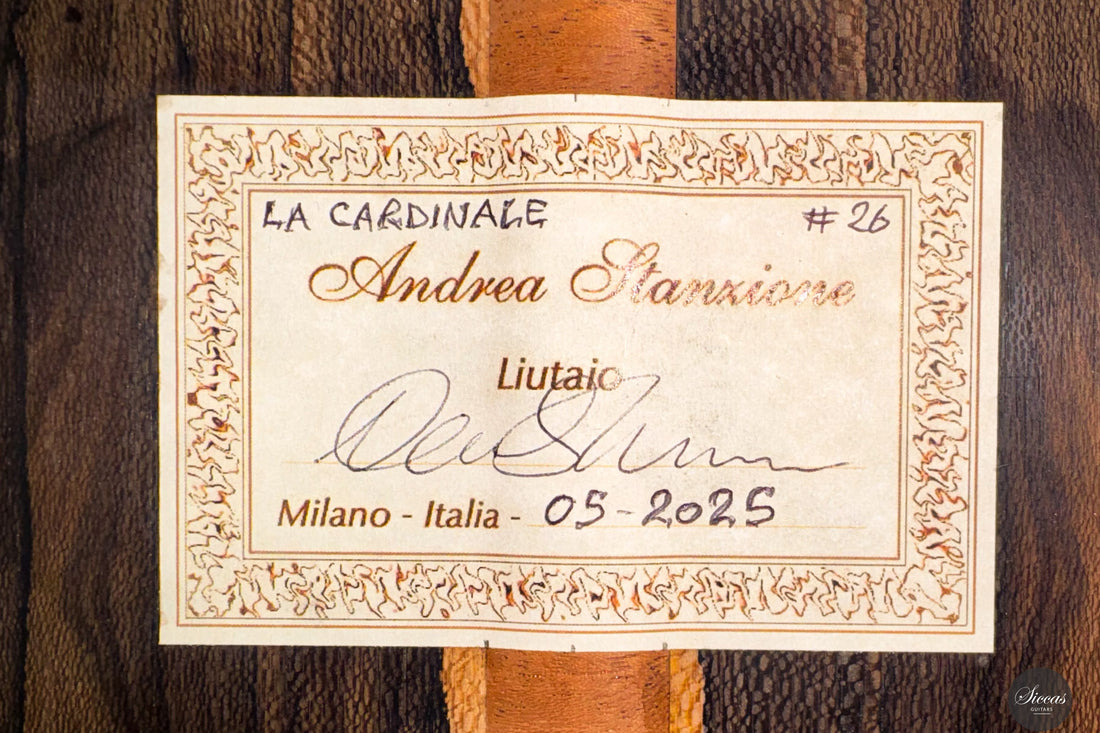 LA CARDINALE #26
Andrea Stanzione
Liutaio
Milano - Italia - 05-2025
Siccas
GUITARS